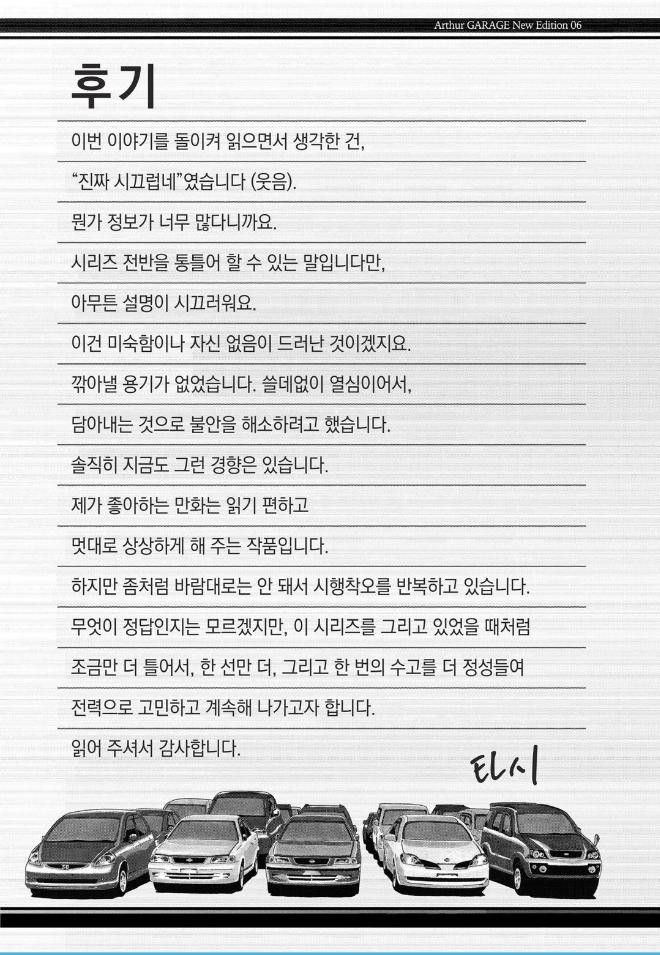 Arthur GARAGE New Edition 06
후기
이번 이야기를 돌이켜 읽으면서 생각한 건,
“진짜 시끄럽네”였습니다 (웃음).
뭔가 정보가 너무 많다니까요.
시리즈 전반을 통틀어 할 수 있는 말입니다만,
아무튼 설명이 시끄러워요.
이건 미숙함이나 자신 없음이 드러난 것이겠지요.
깎아낼 용기가 없었습니다. 쓸데없이 열심이어서,
담아내는 것으로 불안을 해소하려고 했습니다.
솔직히 지금도 그런 경향은 있습니다.
제가 좋아하는 만화는 읽기 편하고
멋대로 상상하게 해 주는 작품입니다.
하지만 좀처럼 바람대로는 안 돼서 시행착오를 반복하고 있습니다.
무엇이 정답인지는 모르겠지만, 이 시리즈를 그리고 있었을 때처럼
조금만 더 틀어서, 한 선만 더, 그리고 한 번의 수고를 더 정성들여
전력으로 고민하고 계속해 나가고자 합니다.
읽어 주셔서 감사합니다.
타시